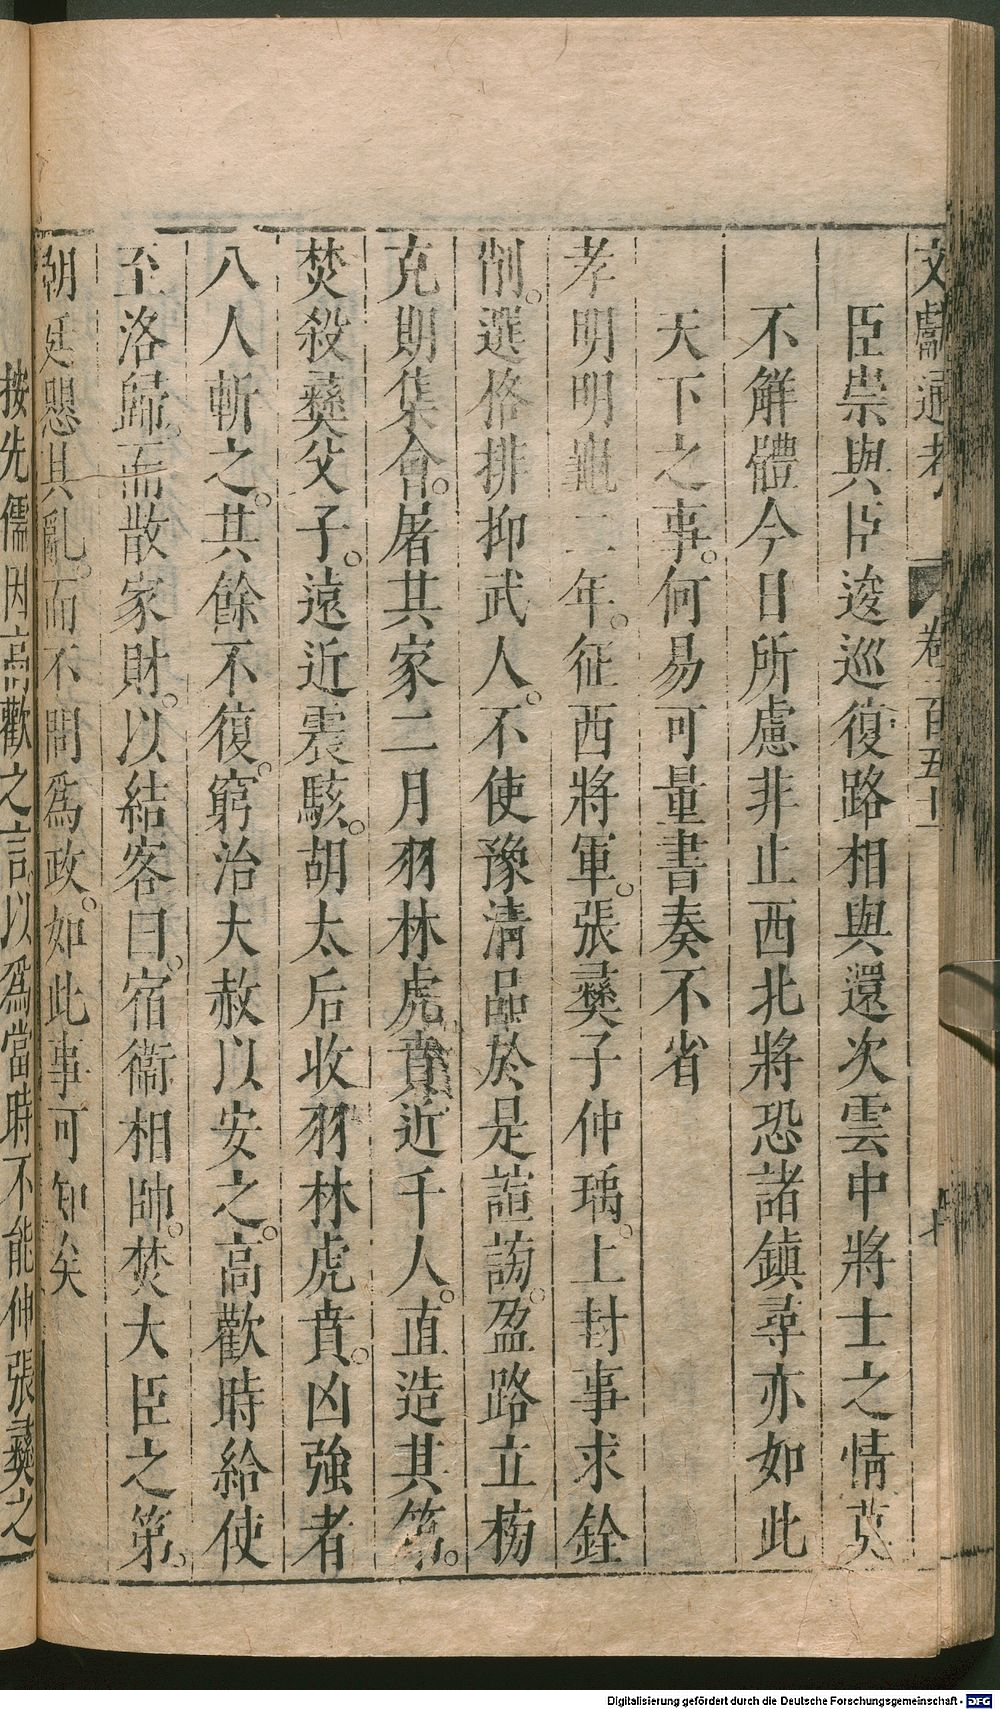 文獻通考 卷一百五十一 七
臣崇與臣逡巡復路相與還次雲中將士之情莫
不解體今日所慮非止西北將恐諸鎮尋亦如此
天下之事何易可量書奏不省
孝明明龜二年征西將軍張彝子仲瑀上封事求銓
削選格排抑武人不使豫清品於是諠謗盈路立榜
克期集會屠其家二月羽林虎賁近千人直造其第
焚殺彝父子遠近震駭胡太后收羽林虎賁凶強者
八人斬之其餘不復窮治大赦以安之高歡時給使
至洛歸而散家財以結客曰宿衞相帥焚大臣之第
朝廷懼其亂而不問為政如此事可知矣
按先儒因高歡之言以為當時不能伸張彝之
Digitalisierung gefördert durch die Deutsche Forschungsgemeinschaft - DFG